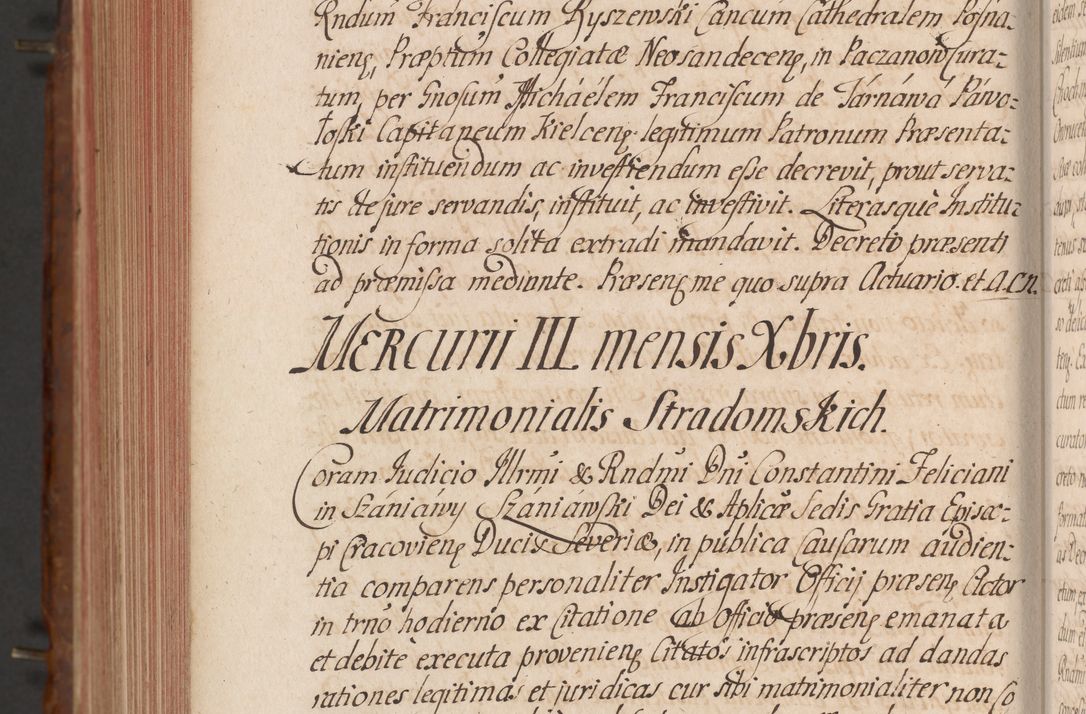 Rndum Franciscum Ryszewski Cancum Cathedralem Posna=
nienȩ, Præptum Collegiatæ Neosandecenȩ, in Paczanow Cura=
tum, per Gnosum Micháélem Franciscum de Tárnáwá Páwo=
łoski Capitaneum Kielcenȩ legitimum Patronum Præsenta=
tum instituendum ac investiendum esse decrevit, prout serva=
tis de jure servandis, instituit, ac investivit. Literasquè Institu=
tionis in forma solita extradi mandavit. Decreto præsenti
ad præmissa mediante. Præsenȩ me quo supra Actuario. et A.C.N.
MERCurii III mensis Xbris.
Matrimonialis Stradomskich.
Coram Judicio Illrmi & Rndmi Dni Constantini Feliciani
in Szániáwy Szániáwski Dei & Aplicæ Sedis Gratia Episco=
pi Cracovienȩ Ducis Severiæ, in publica Causarum audien=
tia comparens personaliter Instigator Officij præsenȩ Actor
in trno hodierno ex Citatione ab Officio præsenȩ emanata
et debitè executa provenienȩ Citatos infrascriptos ad dandas
rationes legitimas et juridicas cur sibi matrimonialiter non so